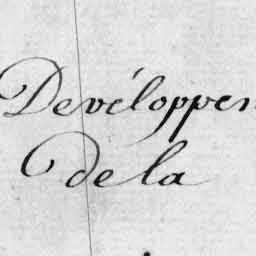 Dévéloppen
de la